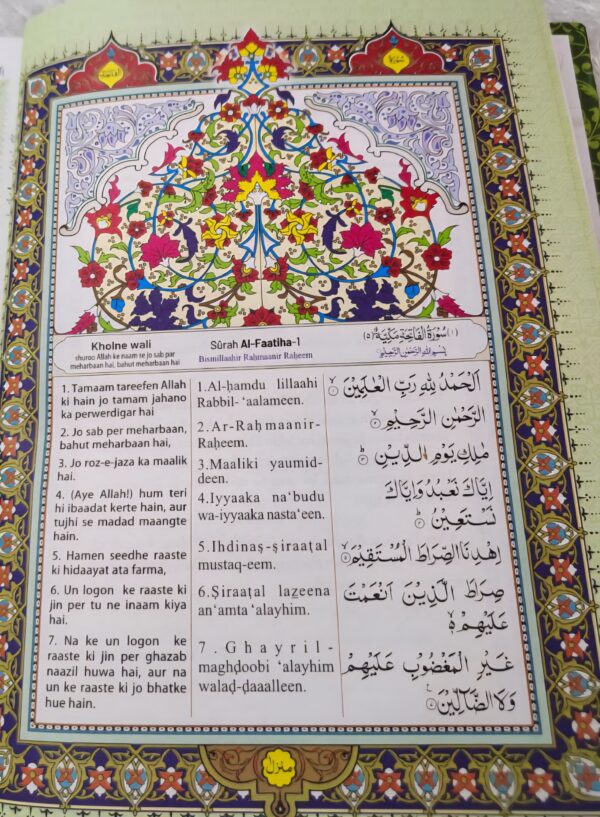 الفاتحة
سورة
Kholne wali
shuroo Allah ke naam se jo sab par
meharbaan hai, bahut meharbaan hai
Sûrah Al-Faatiha-1
Bismillaahir Rahmaanir Raheem
(١) سُوْرَةُ الْفَاتِحَةِ مَكِّيَّةٌ (٥)
بِسْمِ اللّٰهِ الرَّحْمٰنِ الرَّحِيْمِ
1. Tamaam tareefen Allah
ki hain jo tamam jahano
ka perwerdigar hai
2. Jo sab per meharbaan,
bahut meharbaan hai,
3. Jo roz-e-jaza ka maalik
hai.
4. (Aye Allah!) hum teri
hi ibaadat kerte hain, aur
tujhi se madad maangte
hain.
5. Hamen seedhe raaste
ki hidaayat ata farma,
6. Un logon ke raaste ki
jin per tu ne inaam kiya
hai.
7. Na ke un logon ke
raaste ki jin per ghazab
naazil huwa hai, aur na
un ke raaste ki jo bhatke
hue hain.
1.Al-ḥamdu lillaahi
Rabbil-‘aalameen.
2.Ar-Raḥmaanir-
Raḥeem.
3.Maaliki yaumid-
deen.
4.Iyyaaka na‘budu
wa-iyyaaka nasta‘een.
5.Ihdinaṣ-ṣiraaṭal
mustaq-eem.
6.Ṣiraaṭal lazeena
an‘amta ‘alayhim.
7.Ghayril-
maghḍoobi ‘alayhim
walaḍ-ḍaaalleen.
اَلْحَمْدُ لِلّٰهِ رَبِّ الْعٰلَمِيْنَ ۙ﴿١﴾
الرَّحْمٰنِ الرَّحِيْمِ ۙ﴿٢﴾
مٰلِكِ يَوْمِ الدِّيْنِ ﴿٣﴾
اِيَّاكَ نَعْبُدُ وَاِيَّاكَ
نَسْتَعِيْنُ ﴿٤﴾
اِهْدِنَا الصِّرَاطَ الْمُسْتَقِيْمَ ۙ﴿٥﴾
صِرَاطَ الَّذِيْنَ اَنْعَمْتَ
عَلَيْهِمْ ۙ﴿٦﴾
غَيْرِ الْمَغْضُوْبِ عَلَيْهِمْ
وَلَا الضَّآلِّيْنَ ﴿٧﴾
منزل